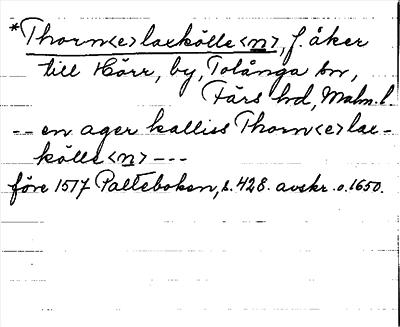 *Thorn<e>laxkölle<n>, f. åker
till Hörr, by, Tolånga sn,
Färs hd, Malm. l.
-- en ager kalliss Thorn<e>lax-
kölle<n> ---
före 1517 Palteboken, s. 428. avskr. o. 1650.